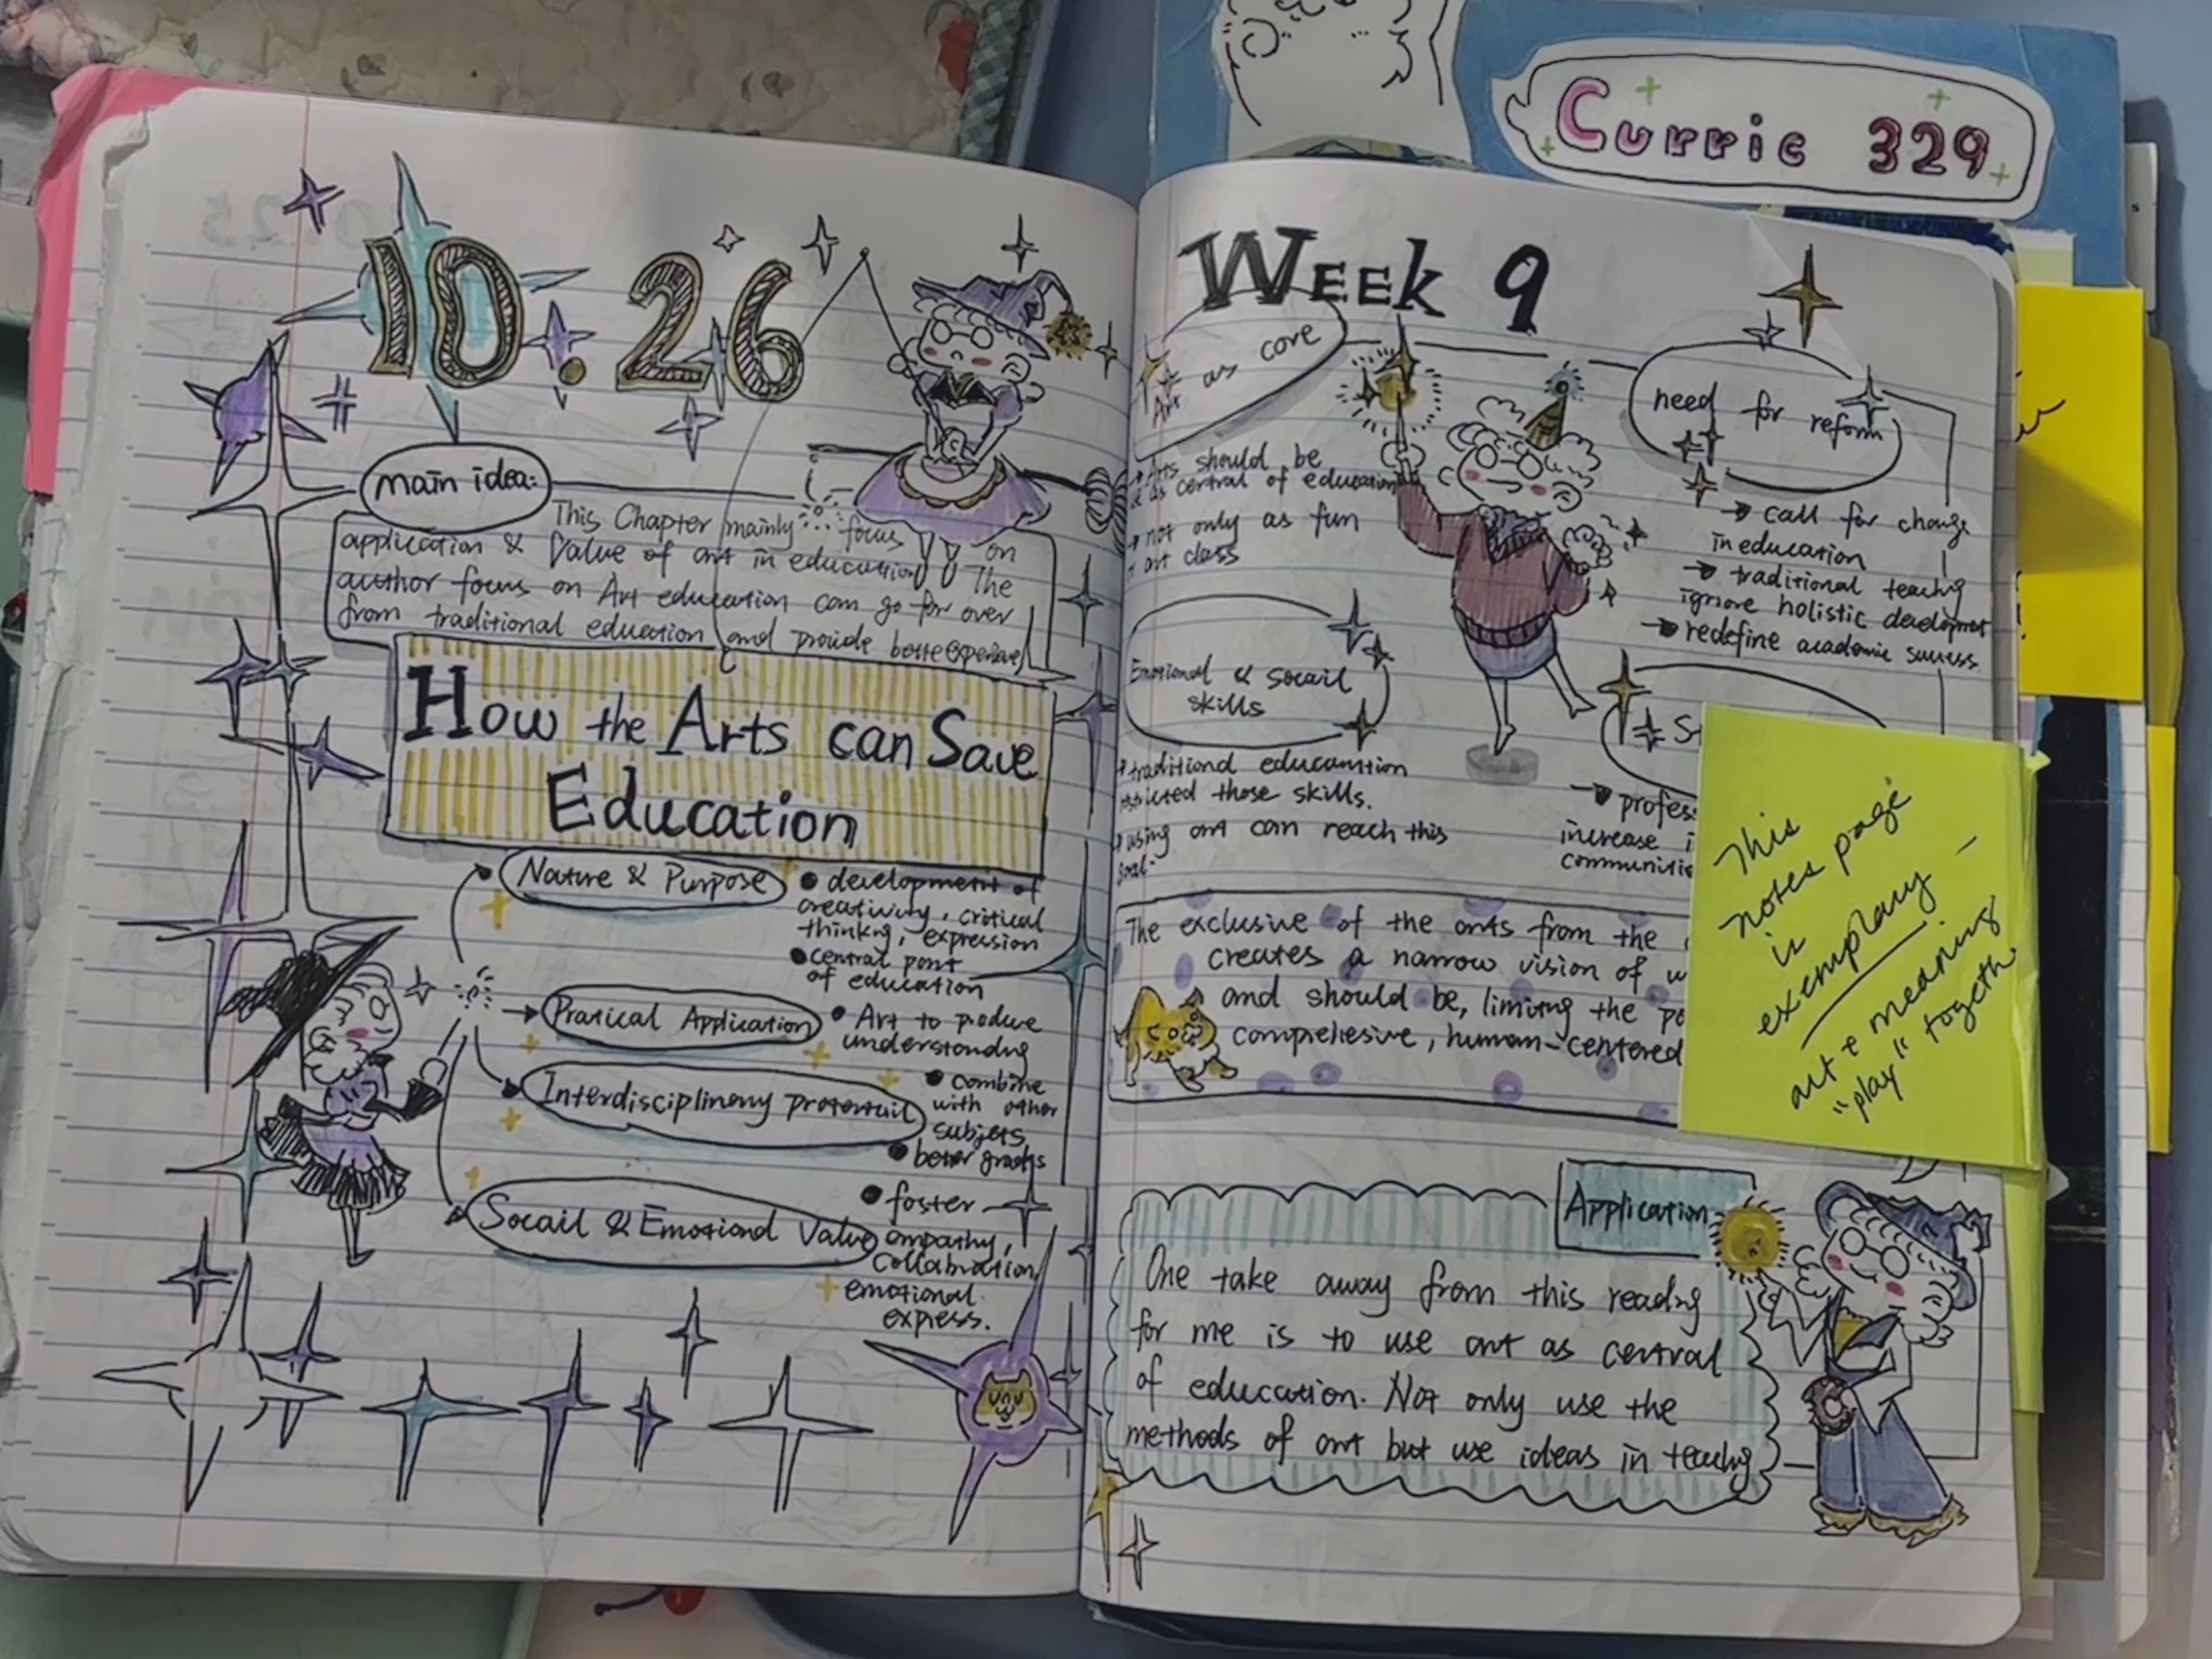 Curric 329
10.26
main idea:
This Chapter mainly focus on
application & Value of art in education. The
author focus on Art education can go for over
from traditional education and provide better
How the Arts can Save
Education
Nature & Purpose
• development of
creativity, critical
thinking, expression
• central part
of education
Pratical Application
• Art to produce
understanding
Interdisciplinary
• combine
with other
subjets
• better grades
Socail & Emotional Value
• foster
empathy,
collabration
emotional
express.
Week 9
Art as core
→ Arts should be
as central of education
→ not only as fun
art class
need for reform
→ call for change
in education
→ traditional teachig
ignore holistic development
→ redefine academic success
Emotional & Socail
skills
→ traditional
those skills.
→ using art can reach this
goal.
→ profes
increase i
communitie
The exclusive of the arts from the
creates a narrow vision of w
and should be, limiting the po
comprehesive, human-centered
This
notes page
is
exemplary –
art & meaning
"play" together
Application
One take away from this readig
for me is to use art as central
of education. Not only use the
methods of art but use ideas in teachig